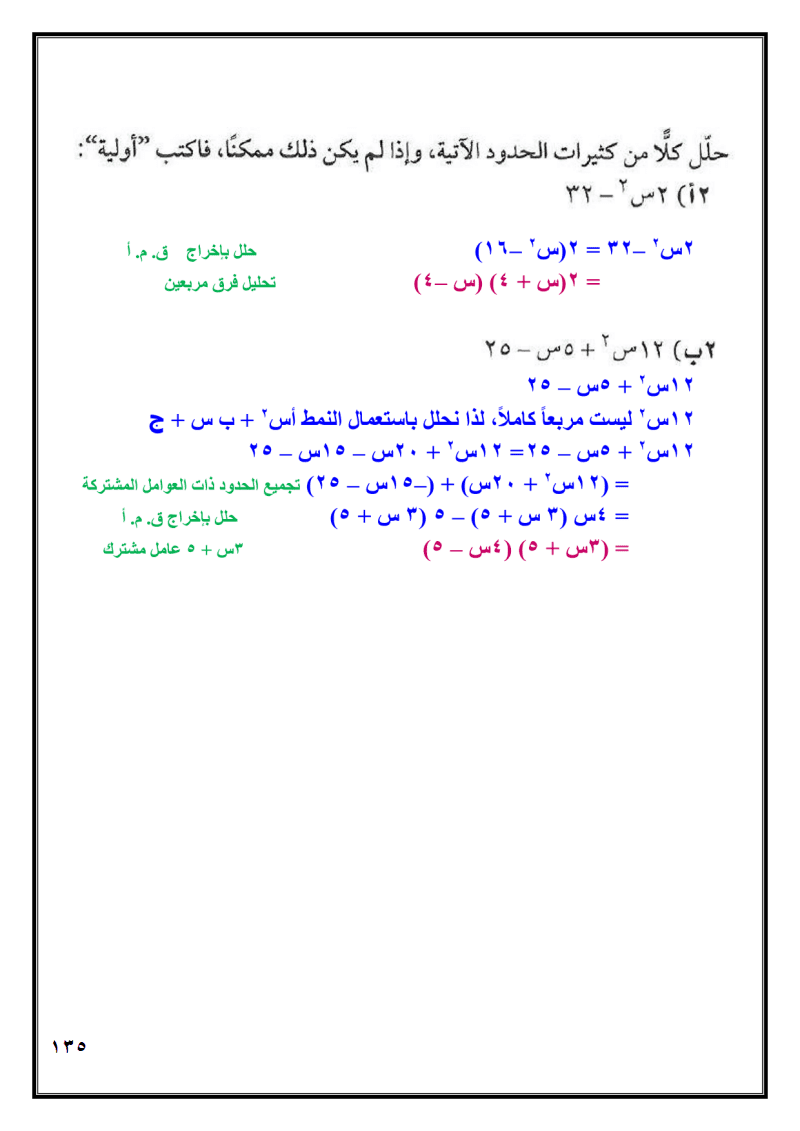 حلّل كلًّا من كثيرات الحدود الآتية، وإذا لم يكن ذلك ممكنًا، فاكتب ”أولية“:
٢أ) ٢س٢ – ٣٢
٢س٢ –٣٢ = ٢(س٢ –١٦) حلل بإخراج ق. م. أ
= ٢(س + ٤) (س –٤) تحليل فرق مربعين
٢ب) ١٢س٢ + ٥س – ٢٥
١٢س٢ + ٥س – ٢٥
١٢س٢ ليست مربعاً كاملاً، لذا نحلل باستعمال النمط أس٢ + ب س + ج
١٢س٢ + ٥س – ٢٥ = ١٢س٢ + ٢٠س – ١٥س – ٢٥
= (١٢س٢ + ٢٠س) + (–١٥س – ٢٥) تجميع الحدود ذات العوامل المشتركة
= ٤س (٣ س + ٥) – ٥ (٣ س + ٥) حلل بإخراج ق. م. أ
= (٣س + ٥) (٤س – ٥) ٣س + ٥ عامل مشترك
١٣٥